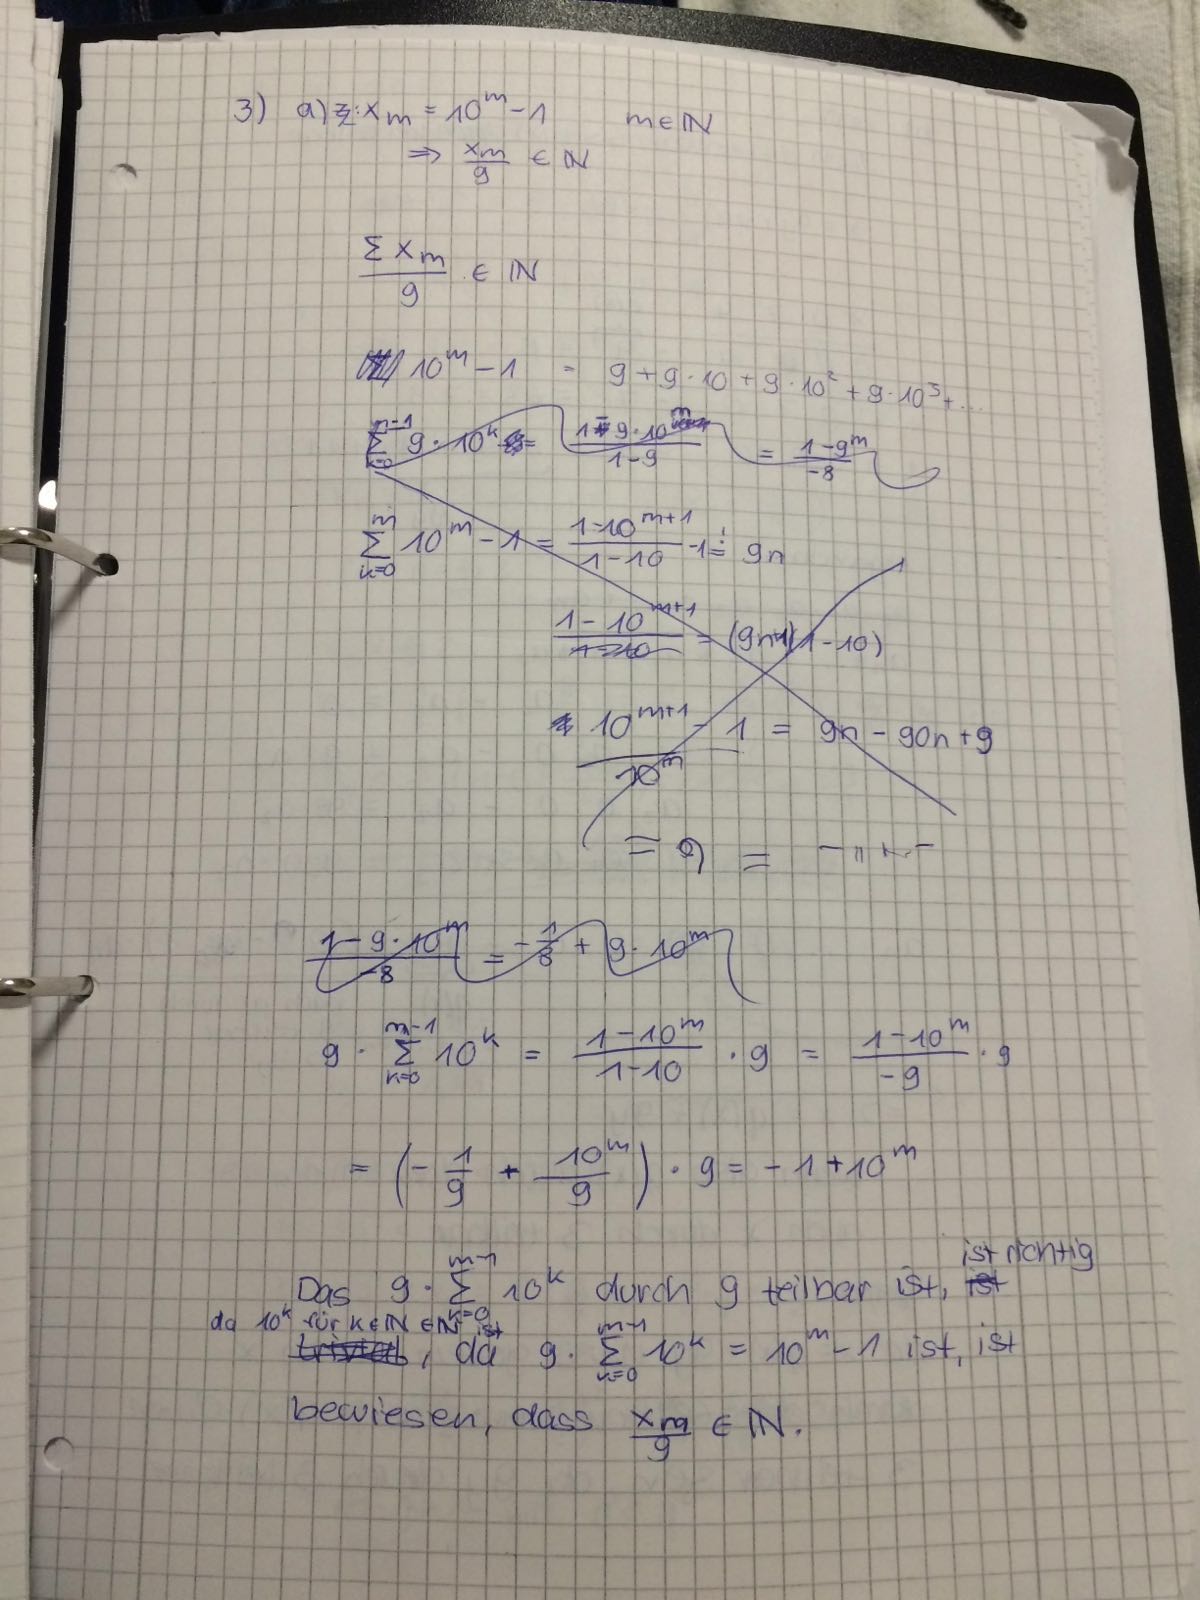 3) a) z: x_m = 10^m - 1 m ∈ ℕ
⇒ x_m/9 ∈ ℕ
Σ x_m / 9 ∈ ℕ
10^m - 1 = 9 + 9·10 + 9·10^2 + 9·10^3 + ...
Σ_{k=0}^{m-1} 9·10^k = (1 - 9·10^m)/(1-9) = (1-9^m)/(-8)
Σ_{k=0}^{m} 10^m - 1 = (1-10^{m+1})/(1-10) - 1 = 9n
(1 - 10^{m+1})/(1-10) = (9n+1)(1-10)
(10^{m+1} - 1)/10^m = 9n - 90n + 9
= 9 =
(1 - 9·10^m)/(-8) = -1/8 + 9·10^m
9 · Σ_{k=0}^{m-1} 10^k = (1-10^m)/(1-10) · 9 = (1-10^m)/(-9) · 9
= (-1/9 + 10^m/9) · 9 = -1 + 10^m
Das 9 · Σ_{k=0}^{m-1} 10^k durch 9 teilbar ist, ist richtig
da 10^k für k∈ℕ ∈ℕ ist
trivial, da 9 · Σ_{k=0}^{m-1} 10^k = 10^m - 1 ist, ist
bewiesen, dass x_m/9 ∈ ℕ.